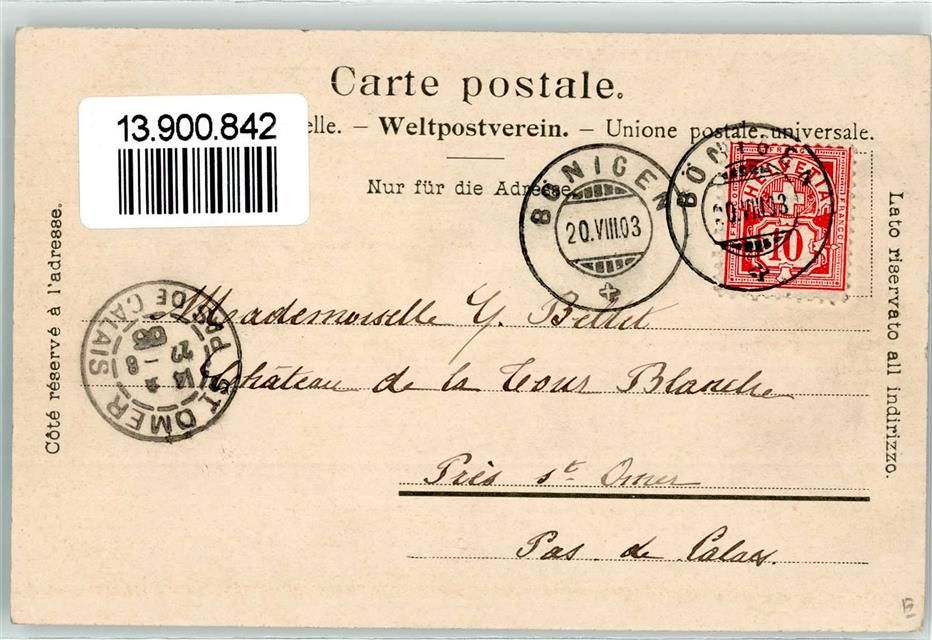 Carte postale.
13.900.842
elle. – Weltpostverein. – Unione postale universale.
Nur für die Adresse
BÖNIGEN
20.VIII.03
BÖNIGEN
20.VIII.03
HELVETIA
FRANCO
10
Côté réservé à l'adresse.
Lato riservato all indirizzo.
Mademoiselle Y. Bellet
Château de la Tour Blanche
Près St Omer
Pas de Calais
ST OMER
PAS DE CALAIS
22 - 8
03
E